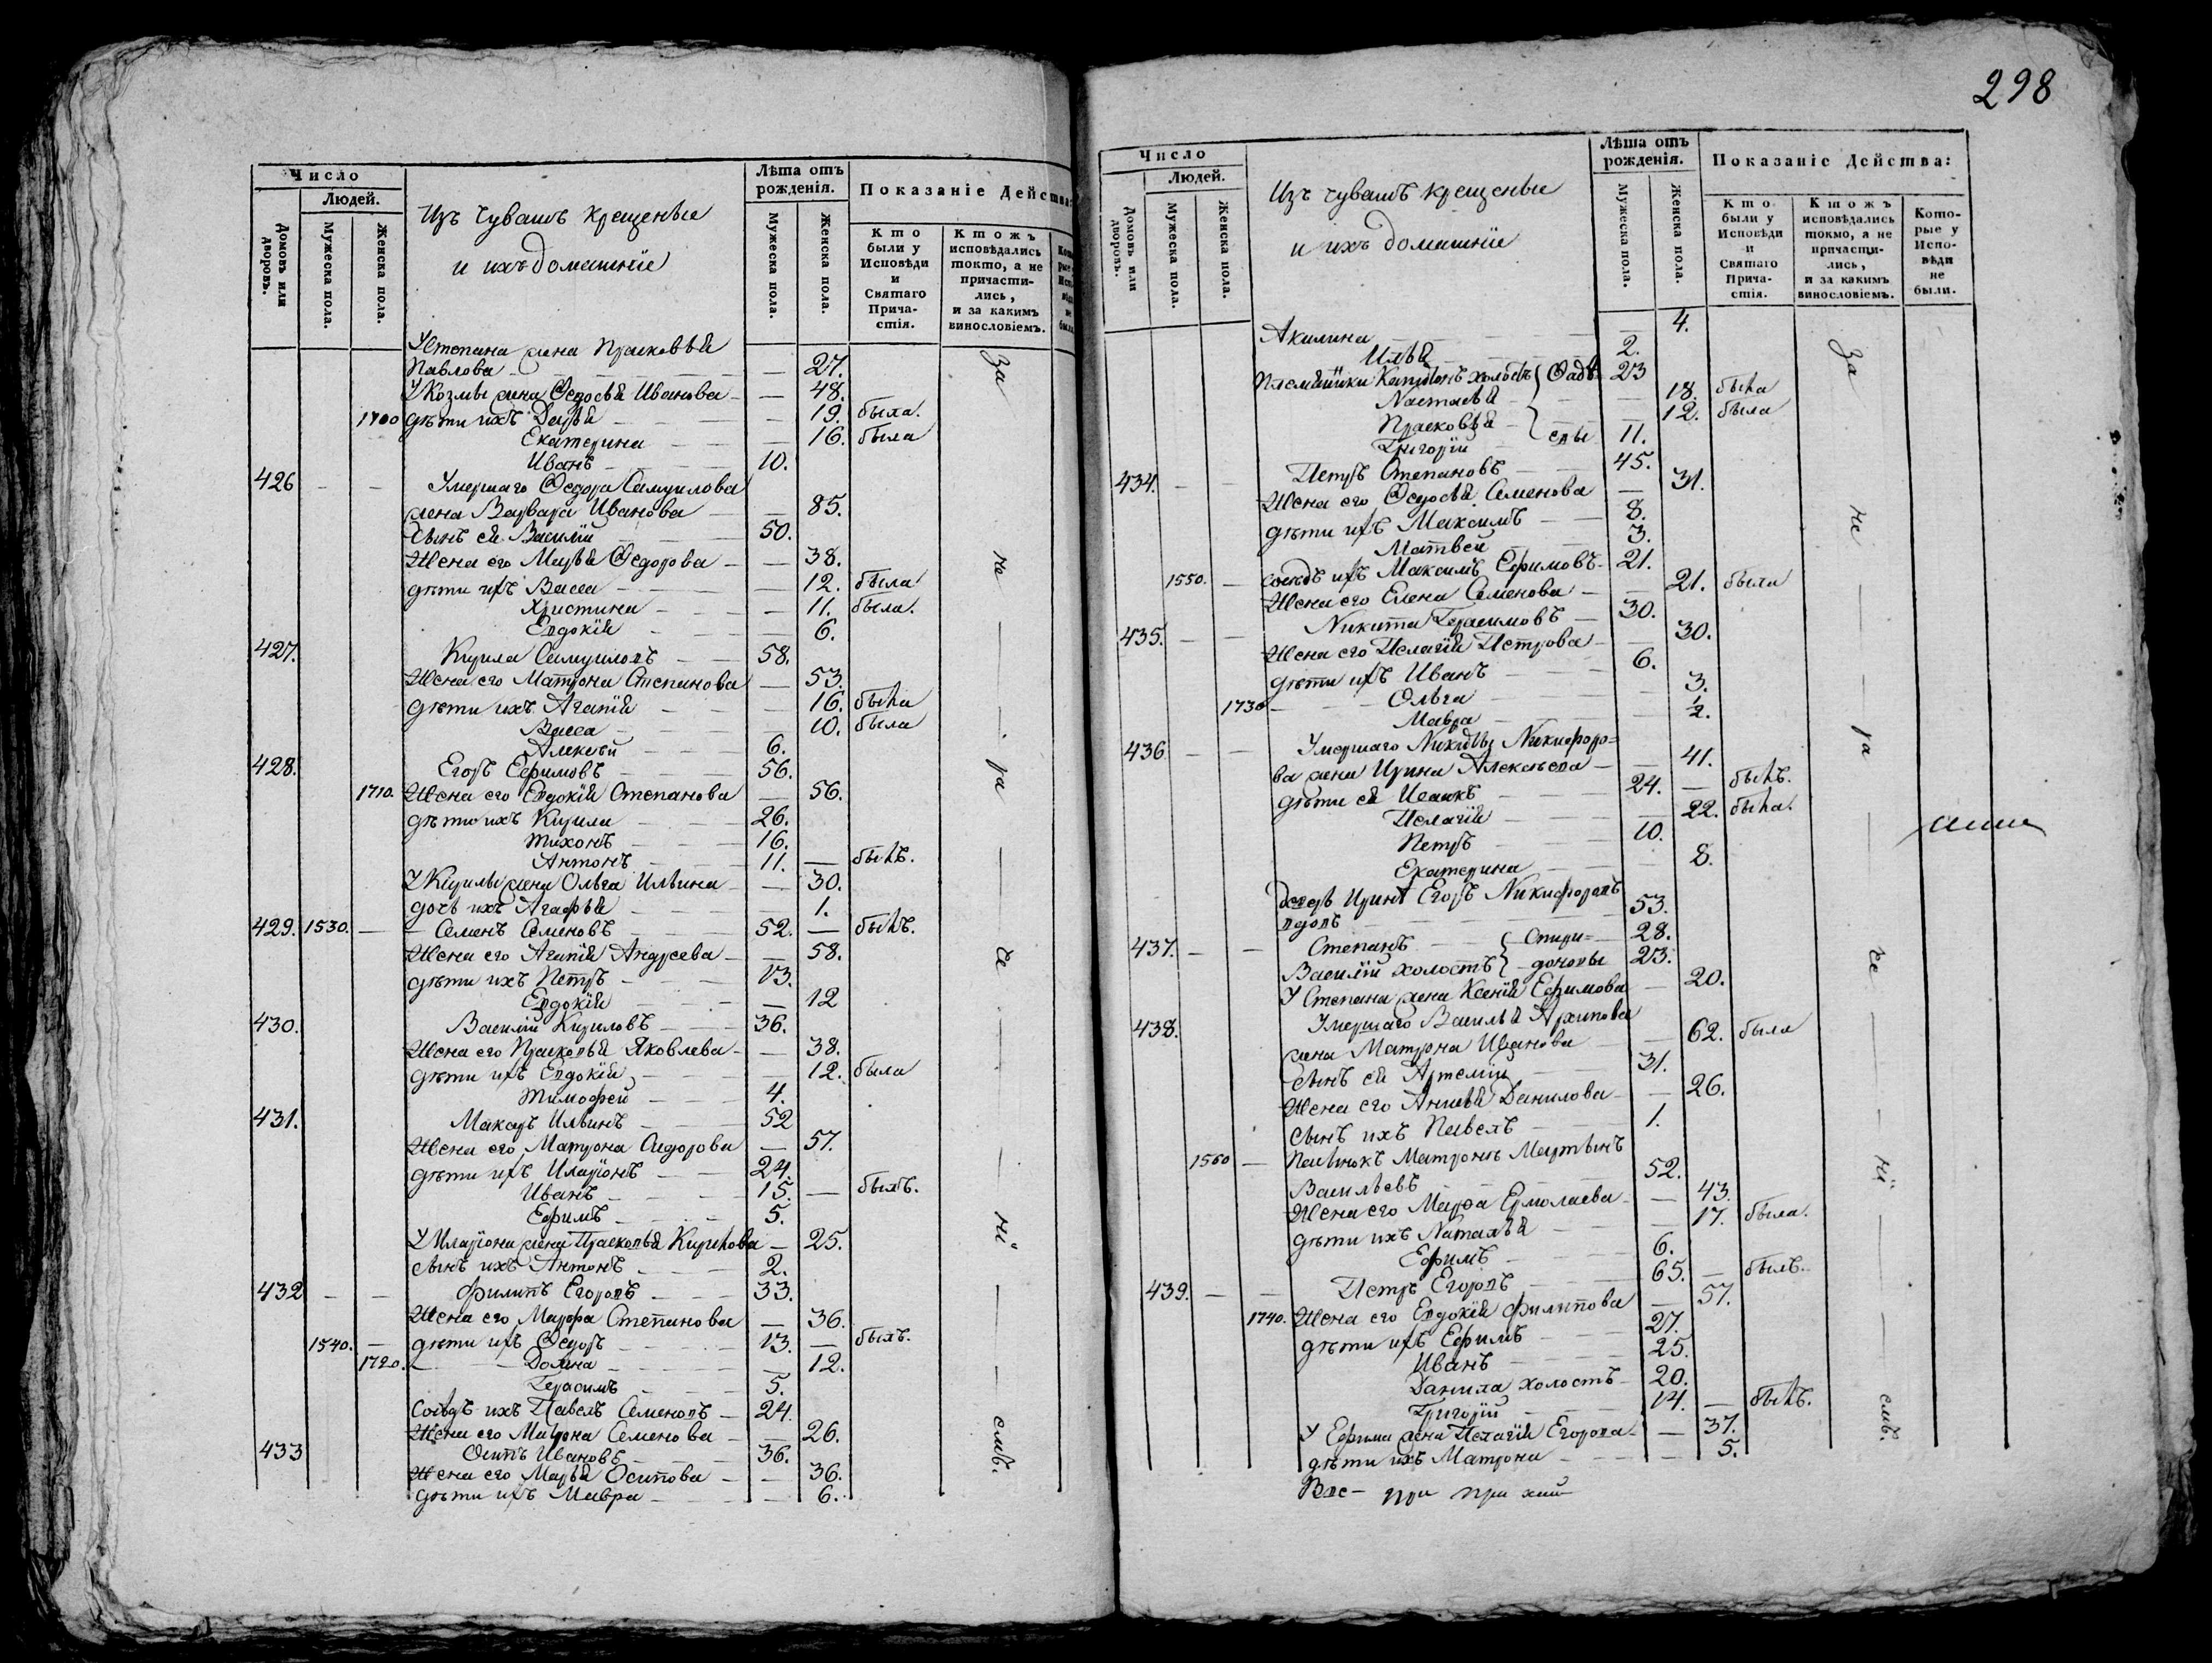 Число
Людей.
Домовъ или дворовъ.
Мужеска пола.
Женска пола.
Изъ чувашъ крещеные
и ихъ домашніе
Лѣта отъ рожденія.
Мужеска пола.
Женска пола.
Показаніе Действа:
Кто были у Исповѣди и Святаго Причастія.
Ктожъ исповѣдались токмо, а не причастились, и за какимъ винословіемъ.
У Степана жена Прасковья
Павлова — 27.
У Козмы жена Ѳедосья Иванова — 48.
1700 дѣти ихъ Дарья — 19. была.
Екатерина — 16. была
Иванъ — 10.
426 — — Умершаго Ѳедора Самуилова
жена Варвара Иванова — 85.
сынъ ея Василій 50.
Жена его Марья Ѳедорова — 38.
дѣти ихъ Васса — 12. была
Христина — 11. была.
Евдокія — 6.
427. Кирила Самуиловъ — 58.
Жена его Матрона Степанова — 53.
дѣти ихъ Агапія — 16. была
Васса — 10. была
Алексѣй — 6.
428. Егоръ Ефимовъ — 56.
1710. Жена его Евдокія Степанова — 56.
дѣти ихъ Кирила — 26.
Тихонъ — 16.
Антонъ — 11. — былъ.
У Кирилы жена Ольга Ильина — 30.
дочь ихъ Агафья — 1.
429. 1530. — Семенъ Семеновъ — 52. — былъ.
Жена его Агапія Андреева — 58.
дѣти ихъ Петръ — 13.
Евдокія — 12
430. Василій Кириловъ — 36.
Жена его Прасковья Яковлева — 38.
дѣти ихъ Евдокія — 12. была
Тимофей — 4.
431. Макаръ Ильинъ — 52
Жена его Матрона Сидорова — 57.
дѣти ихъ Иларіонъ — 24.
Иванъ — 15. — былъ.
Ефимъ — 5.
У Иларіона жена Прасковья Кирилова — 25.
сынъ ихъ Антонъ — 2.
432 — — Филипъ Егоровъ — 33.
Жена его Марфа Степанова — 36.
1540. — дѣти ихъ Ѳедоръ — 13. — былъ.
1720. — Домна — 12.
Герасимъ — 5.
Сосѣдъ ихъ Павелъ Семеновъ — 24.
Жена его Матрона Семенова — 26.
433 Осипъ Ивановъ — 36.
Жена его Марья Осипова — 36.
дѣти ихъ Мавра — 6.
За — не — ра — че — ні — емъ.
298
Число
Людей.
Домовъ или дворовъ.
Мужеска пола.
Женска пола.
Изъ чувашъ крещеные
и ихъ домашніе
Лѣта отъ рожденія.
Мужеска пола.
Женска пола.
Показаніе Действа:
Кто были у Исповѣди и Святаго Причастія.
Ктожъ исповѣдались токмо, а не причастились, и за какимъ винословіемъ.
Которые у Исповѣди не были.
Акилина — 4.
Илья — 2.
Племянники холостъ 23
Настасья — 18. была
Прасковья — 12. была
Григорій 11.
434. — — Петръ Степановъ — 45.
Жена его Ѳедосья Семенова — 31.
дѣти ихъ Максимъ — 8.
Матвей — 3.
1550. — сосѣдъ ихъ Максимъ Ефимовъ — 21.
Жена его Елена Семенова — 21. была
435. — — Никита Герасимовъ — 30.
Жена его Пелагія Петрова — 30.
дѣти ихъ Иванъ — 6.
1730 — Ольга — 3.
Мавра — 1/2.
436 — — Умершаго Никиты Никифоро=
ва жена Ирина Алексѣева — 41.
дѣти ея Исакъ — 24. — былъ.
Пелагія — 22. была.
Петръ — 10.
Екатерина — 8.
Ирины Егоръ Никифоровъ
вдовъ — 53.
437. — — Степанъ — Спири= 28.
Василій холостъ доновы 23.
У Степана жена Ксенія Ефимова — 20.
438. Умершаго Василья Архипова
жена Матрона Иванова — 62. была
сынъ ея Артемій — 31.
Жена его Анисья Данилова — 26.
сынъ ихъ Павелъ — 1.
1560 — Пасынокъ Матроны Мартынъ
Васильевъ — 52.
Жена его Марфа Ермолаева — 43.
дѣти ихъ Наталья — 17. была.
Ефимъ — 6.
439. — — Петръ Егоровъ — 65. — былъ.
1740. Жена его Евдокія Филипова — 57.
дѣти ихъ Ефимъ — 27.
Иванъ — 25.
Данила холостъ — 20.
Григорій — 14. — былъ.
У Ефима жена Пелагія Егорова — 37.
дѣти ихъ Матрона — 5.
За — не — ра — че — ні — емъ.